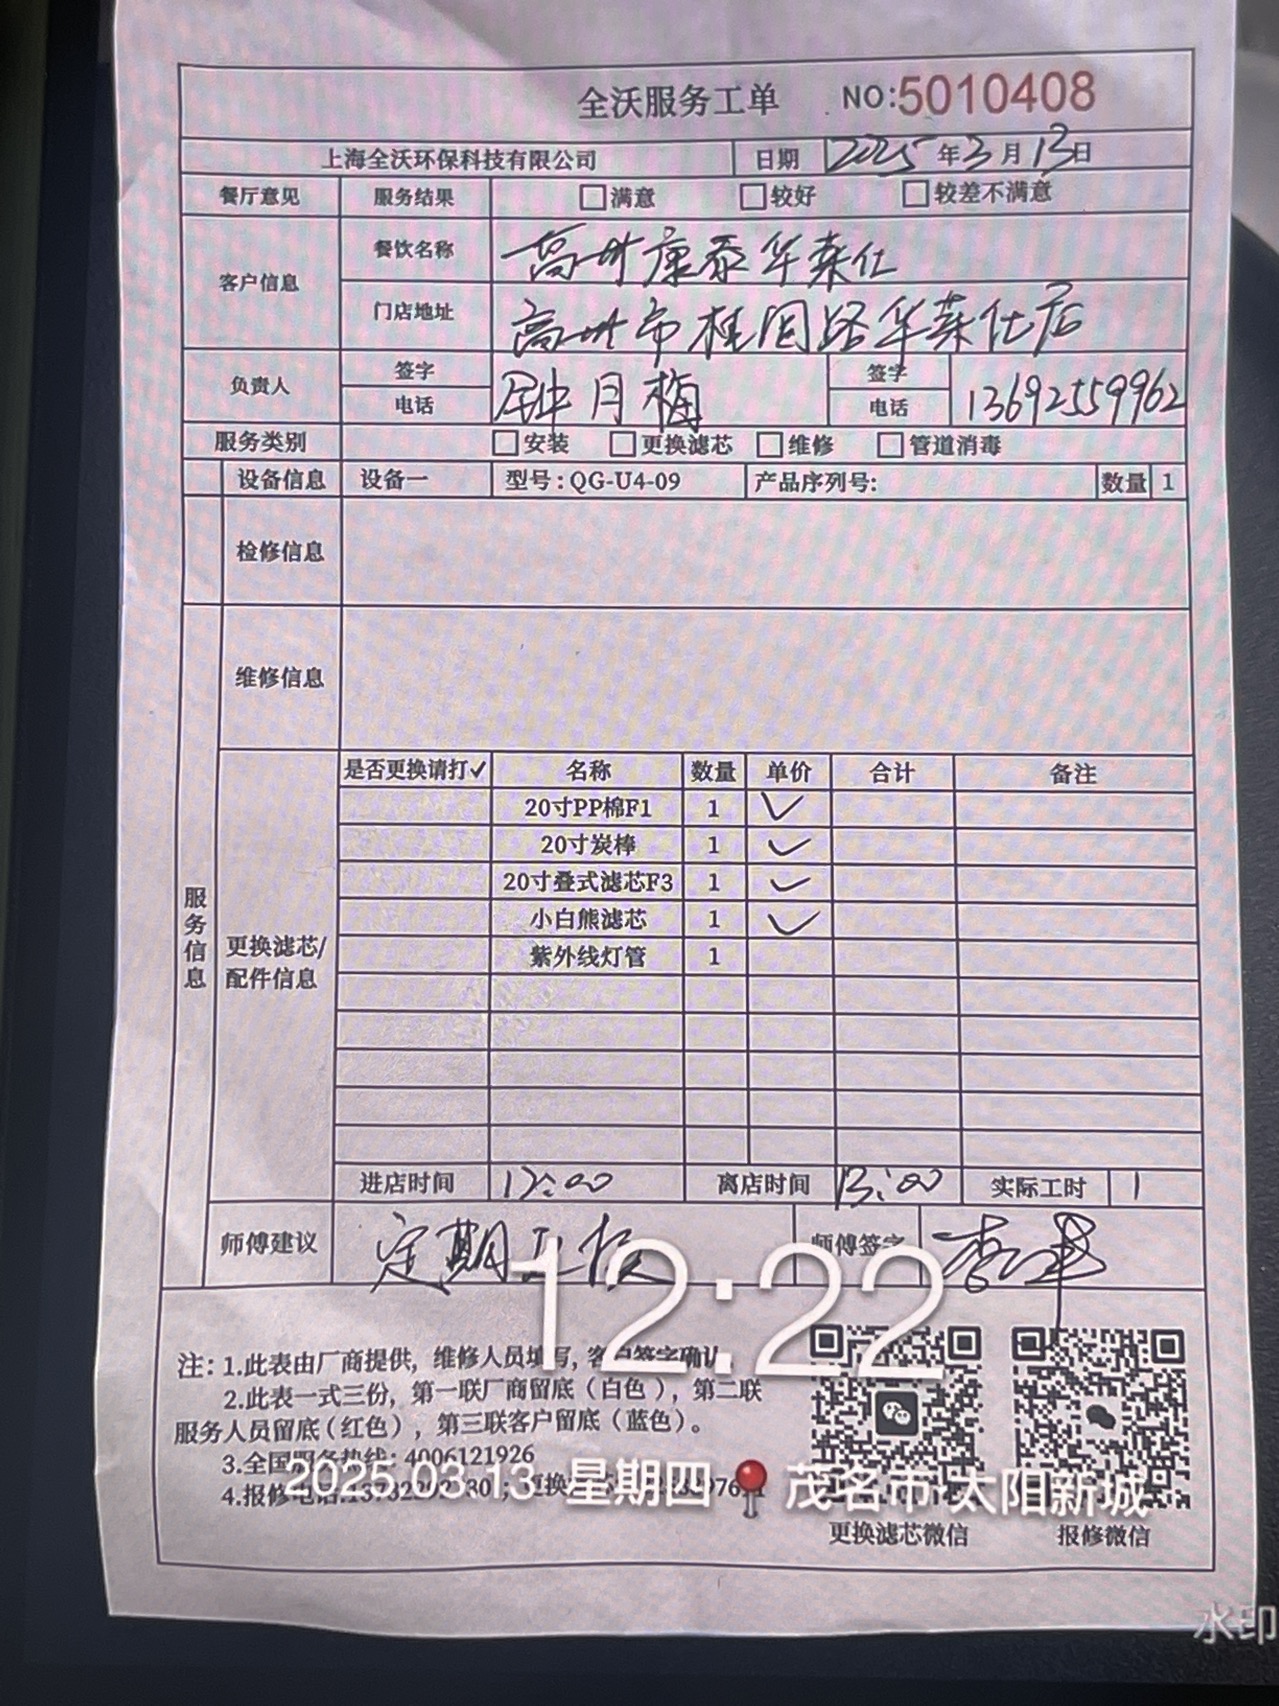 全沃服务工单 NO:5010408
上海全沃环保科技有限公司 日期 2025年3月13日
餐厅意见 服务结果 □满意 □较好 □较差不满意
客户信息 餐饮名称 高州康泰华莱仕
门店地址 高州市桂园路华莱仕店
负责人 签字 电话 钟月梅 签字 电话 13692559962
服务类别 □安装 □更换滤芯 □维修 □管道消毒
设备信息 设备一 型号:QG-U4-09 产品序列号: 数量 1
检修信息
维修信息
服务信息
更换滤芯/配件信息
是否更换请打✓ 名称 数量 单价 合计 备注
20寸PP棉F1 1 ✓
20寸炭棒 1 ✓
20寸叠式滤芯F3 1 ✓
小白熊滤芯 1 ✓
紫外线灯管 1
进店时间 12:00 离店时间 13:00 实际工时 1
师傅建议 定期更换 师傅签字
12:22
注: 1.此表由厂商提供, 维修人员填写, 客户签字确认
2.此表一式三份, 第一联厂商留底(白色), 第二联
服务人员留底(红色), 第三联客户留底(蓝色)。
3.全国服务热线: 4006121926
4.报修电话:
2025.03.13 星期四 茂名市·太阳新城
更换滤芯微信 报修微信
水印